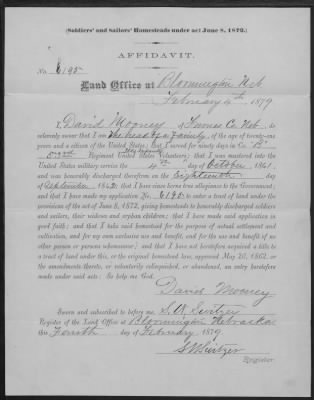 (Soldiers' and Sailors' Homesteads under act June 8, 1872.)
AFFIDAVIT.
No. 6195
Land Office at Bloomington Neb
February 4th 1879
I, David Mooney of Co. Neb do
solemnly swear that I am the head of a family, of the age of twenty-one
years and a citizen of the United States; that I served for ninety days in Co. B
Regiment United States Volunteers; that I was mustered into the
United States military service the 4th day of October, 1861,
and was honorably discharged therefrom on the Eighteenth day
of September, 1862; that I have since borne true allegiance to the Government; and
that I have made my application No. 6195 to enter a tract of land under the
provisions of the act of June 8, 1872, giving homesteads to honorably discharged soldiers
and sailors, their widows and orphan children; that I have made said application in
good faith; and that I take said homestead for the purpose of actual settlement and
cultivation, and for my own exclusive use and benefit, and for the use and benefit of no
other person or persons whomsoever; and that I have not heretofore acquired a title to
a tract of land under this, or the original homestead law, approved May 20, 1862, or
the amendments thereto, or voluntarily relinquished, or abandoned, an entry heretofore
made under said acts: So help me God.
David Mooney
Sworn and subscribed to before me, S. W. Switzer
Register of the Land Office at Bloomington Nebraska
this Fourth day of February, 1879.
S W Switzer
Register.